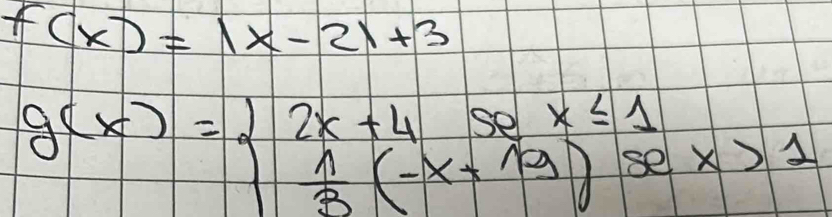 f(x) = |x-2|+3
g(x) = { 2x+4 se x ≤ 1
1/3 (-x+19) se x > 1